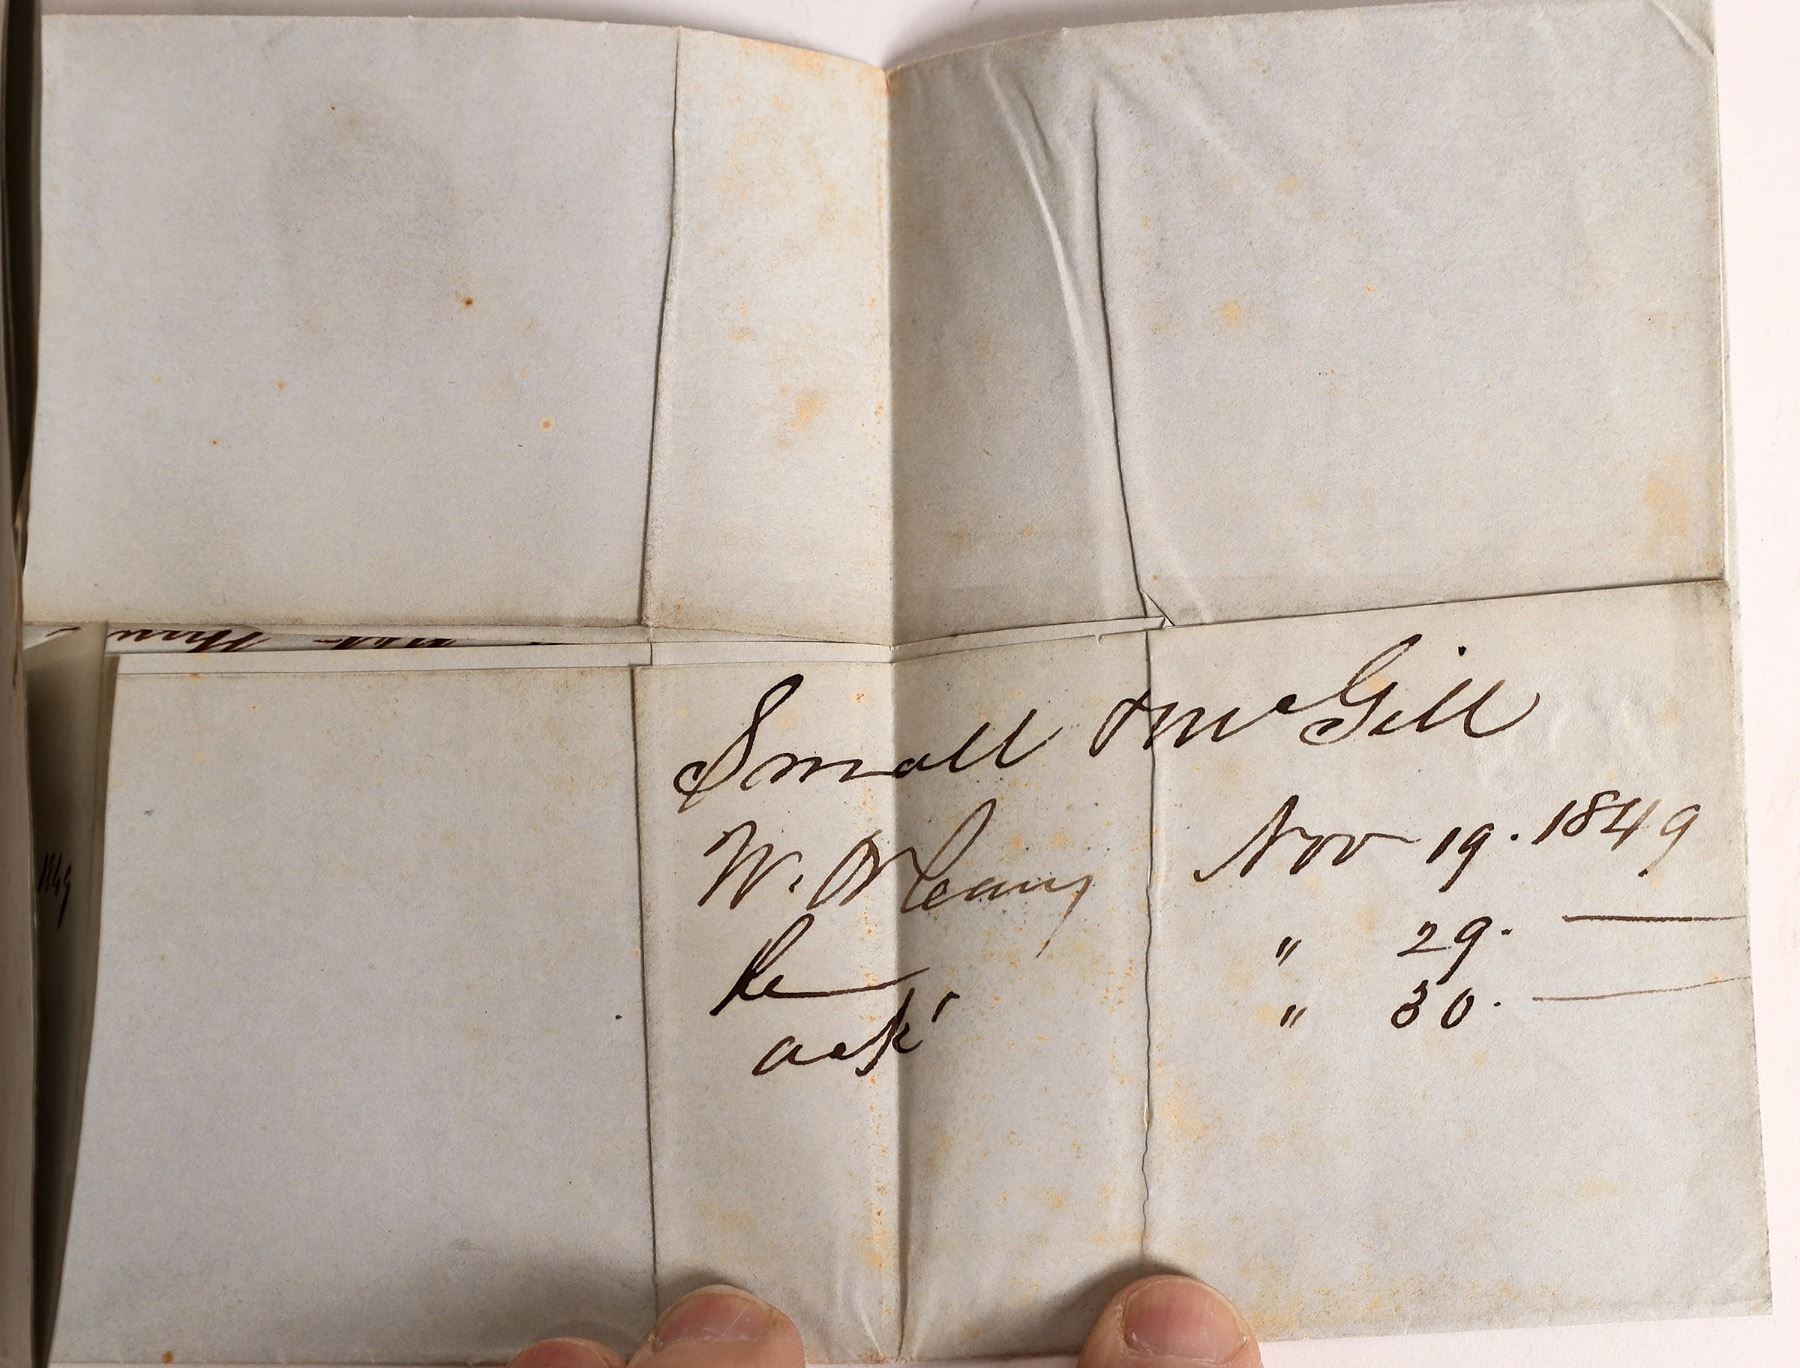 Small & McGill
N. Orleans Nov 19. 1849
Re " 29. —
ack' " 30. —
1849